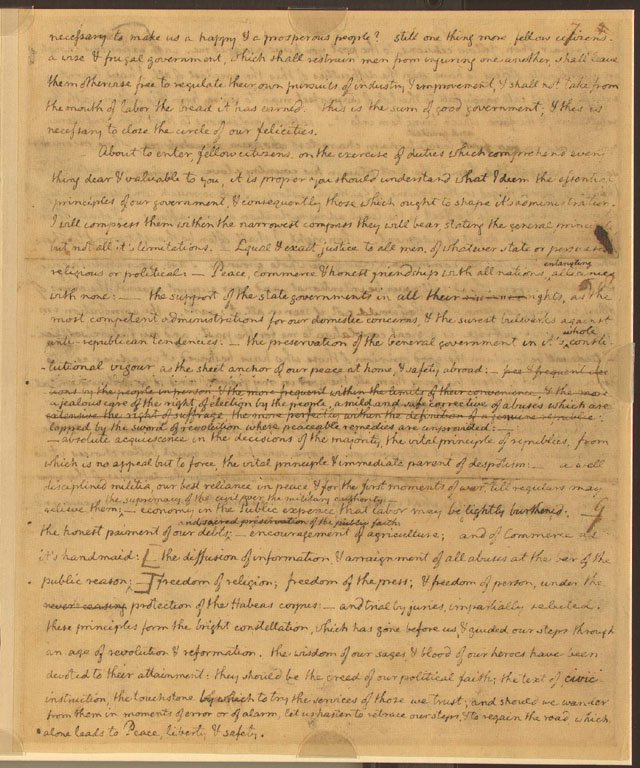 necessary to make us a happy & a prosperous people? still one thing more fellow citizens.
a wise & frugal government, which shall restrain men from injuring one another, shall leave
them otherwise free to regulate their own pursuits of industry & improvement, & shall not take from
the mouth of labor the bread it has earned. this is the sum of good government, & this is
necessary to close the circle of our felicities.
About to enter, fellow citizens, on the exercise of duties which comprehend every
thing dear & valuable to you, it is proper you should understand what I deem the essential
principles of our government, & consequently those which ought to shape it's administration.
I will compress them within the narrowest compass they will bear, stating the general principle
but not all it's limitations. — Equal & exact justice to all men, of whatever state or persuasion
entangling
religious or political: — Peace, commerce & honest friendship with all nations, alliances
with none: — the support of the state governments in all their rights, as the
most competent administrations for our domestic concerns, & the surest bulwarks against
anti-republican tendencies: — the preservation of the General government in it's
whole
consti-
-tutional vigour as the sheet anchor of our peace at home, & safety abroad: — free & frequent elec
tions by the people in person & the more frequent within the limits of their convenience, & the more
a jealous care of the right of election by the people, a mild and safe corrective of abuses which are
extensive the right of suffrage the more perfectly within the definition of a genuine republic:
lopped by the sword of revolution where peaceable remedies are unprovided: —
— absolute acquiescence in the decisions of the majority, the vital principle of republics, from
which is no appeal but to force, the vital principle & immediate parent of despotism: — a well
disciplined militia, our best reliance in peace & for the first moments of war, till regulars may
the supremacy of the civil over the military authority: —
relieve them: — economy in the public expence that labor may be lightly burthened: —
and sacred preservation of the public faith
the honest paiment of our debts: — encouragement of agriculture; and of Commerce as
it's handmaid: [ the diffusion of information & arraignment of all abuses at the bar of the
public reason; —] freedom of religion; freedom of the press; & freedom of person, under the
never ceasing protection of the Habeas corpus: — and trial by juries, impartially selected.
these principles form the bright constellation, which has gone before us, & guided our steps through
an age of revolution & reformation. the wisdom of our sages & blood of our heroes have been
devoted to their attainment: they should be the creed of our political faith; the text of civic
instruction, the touchstone by which to try the services of those we trust; and should we wander
from them in moments of error or of alarm, let us hasten to retrace our steps, & to regain the road which
alone leads to Peace, liberty & safety.